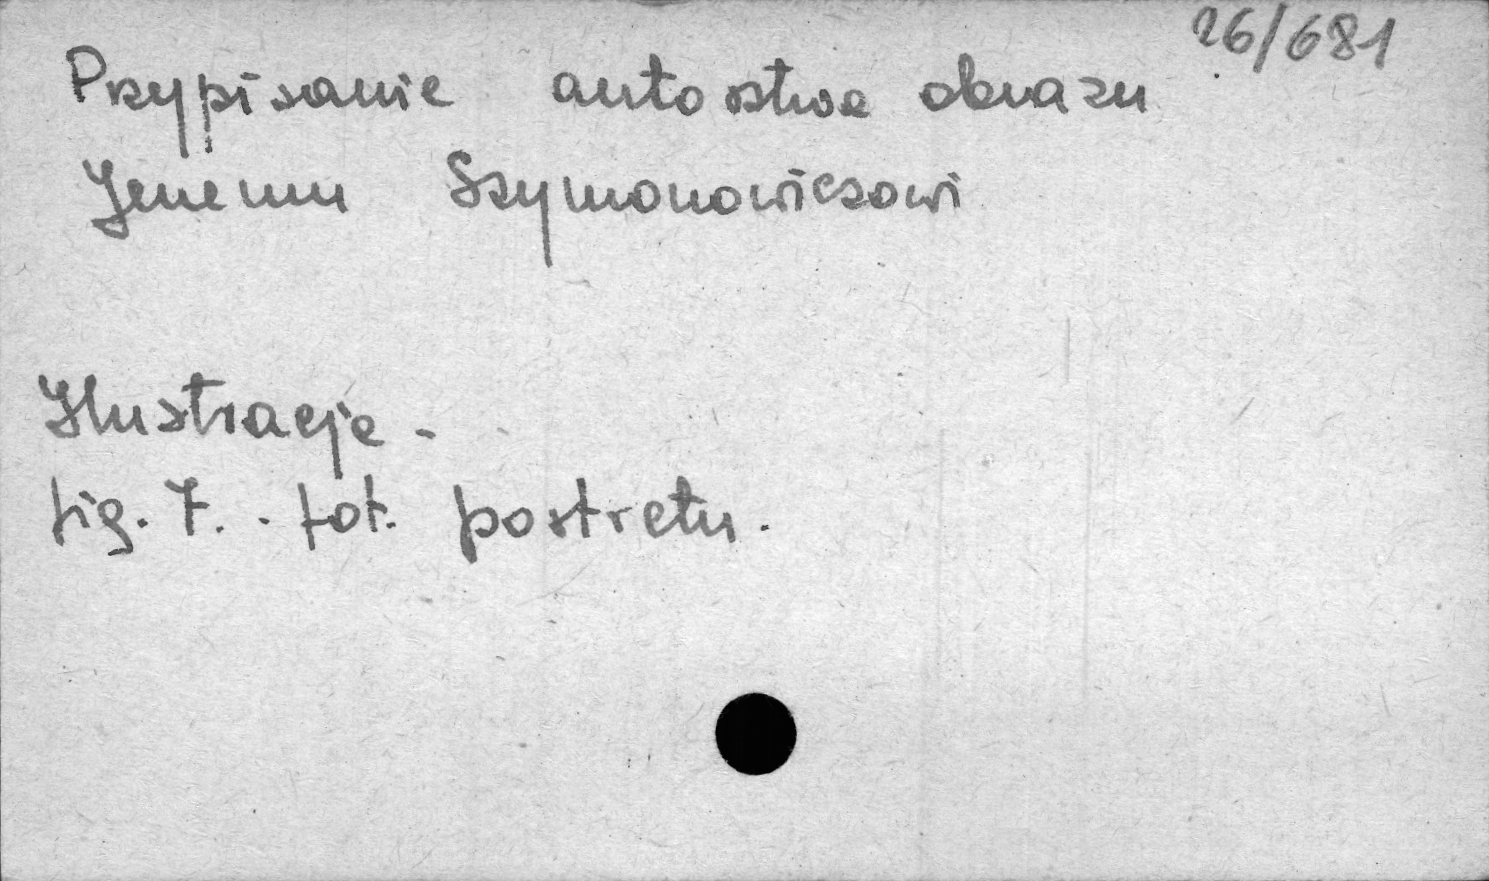 26/681
Przypisanie autorstwa obrazu
Jerzemu Szymonowiczowi
Ilustracje -
fig. 7. - fot. portretu.